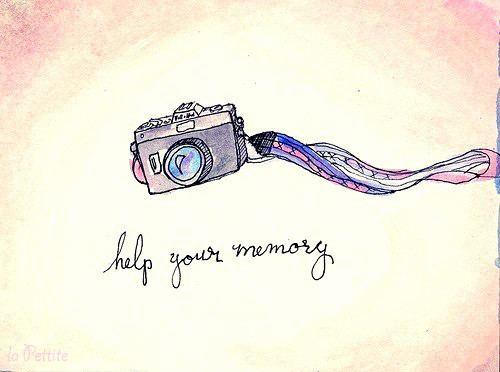 help your memory
la Pettite